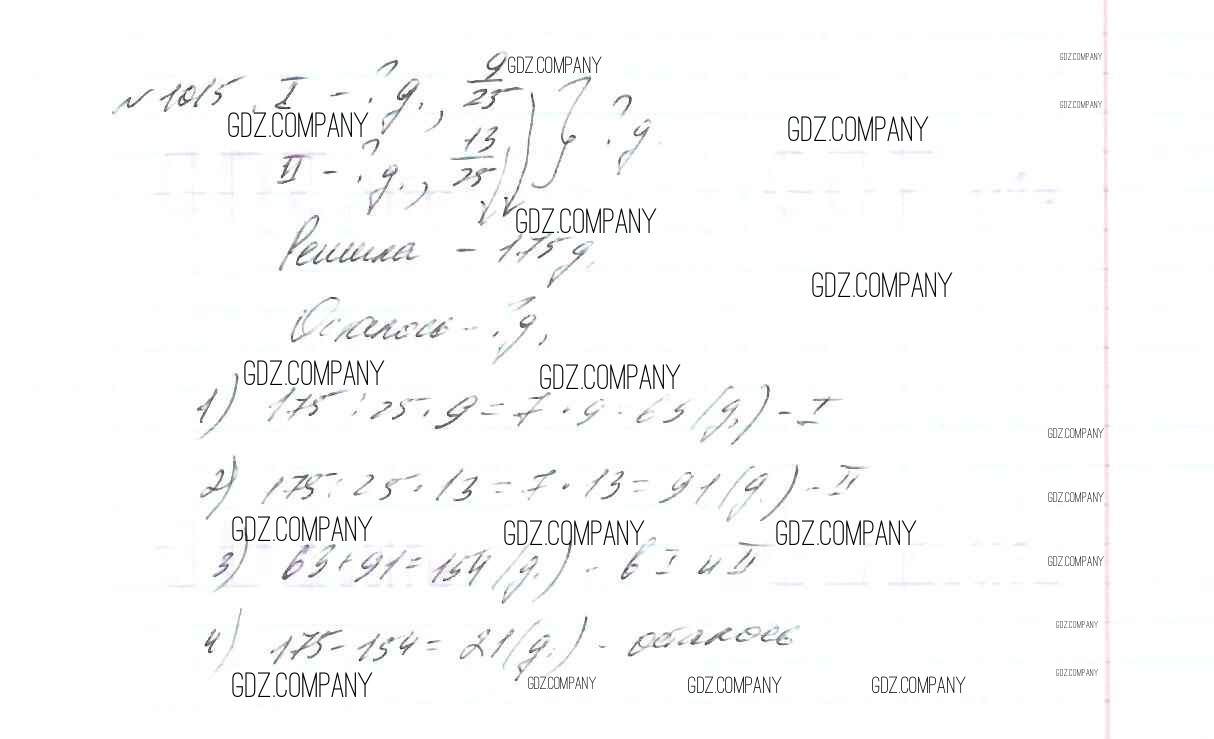 GDZ.COMPANY
GDZ.COMPANY
№ 1015. I - ? д., 9/25
GDZ.COMPANY
GDZ.COMPANY
GDZ.COMPANY
} ? д.
II - ? д., 13/25
GDZ.COMPANY
Решила - 175 д.
GDZ.COMPANY
Осталось - ? д.
GDZ.COMPANY
GDZ.COMPANY
1) 175 : 25 · 9 = 7 · 9 = 63 (д.) - I
GDZ.COMPANY
2) 175 : 25 · 13 = 7 · 13 = 91 (д.) - II
GDZ.COMPANY
GDZ.COMPANY
GDZ.COMPANY
GDZ.COMPANY
3) 63 + 91 = 154 (д.) - в I и II
GDZ.COMPANY
GDZ.COMPANY
4) 175 - 154 = 21 (д.) - осталось
GDZ.COMPANY
GDZ.COMPANY
GDZ.COMPANY
GDZ.COMPANY
GDZ.COMPANY